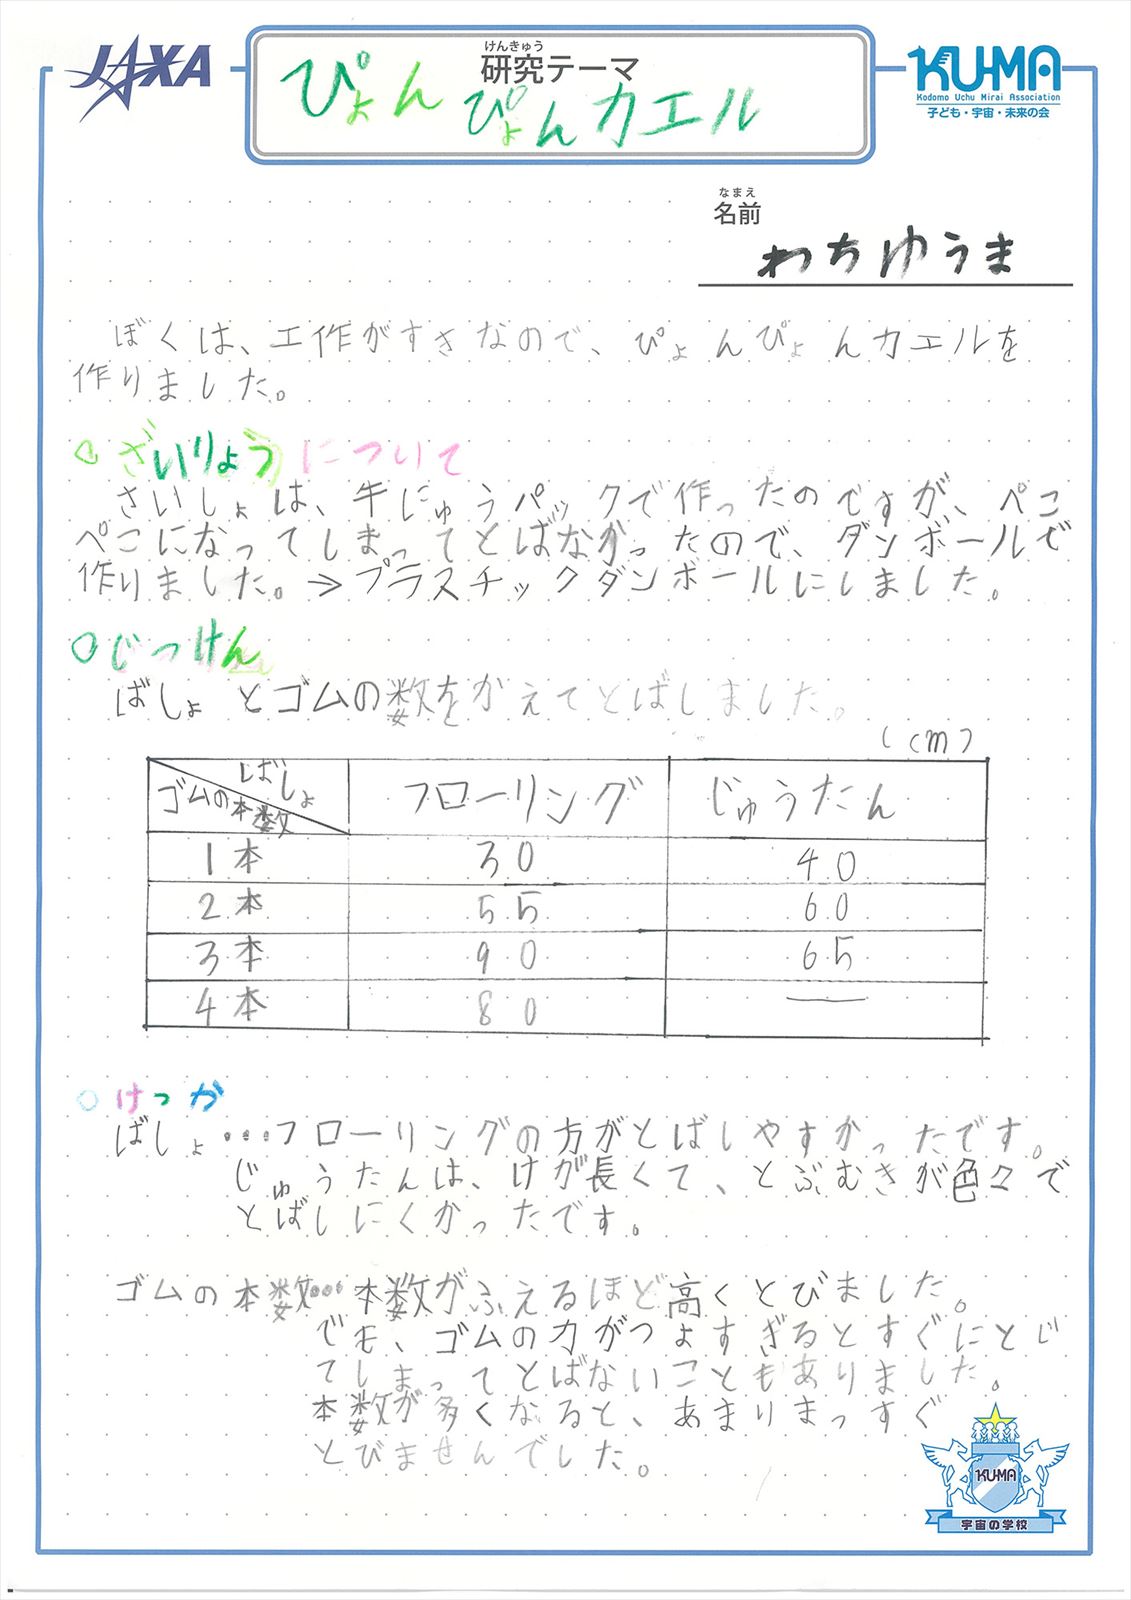 JAXA
けんきゅう
研究テーマ
ぴょんぴょんカエル
KU-MA
Kodomo Uchu Mirai Association
子ども・宇宙・未来の会
なまえ
名前
わちゆうま
ぼくは、工作がすきなので、ぴょんぴょんカエルを
作りました。
ざいりょうについて
さいしょは、牛にゅうパックで作ったのですが、ぺこ
ぺこになってしまってとばなかったので、ダンボールで
作りました。→プラスチックダンボールにしました。
○じっけん
ばしょとゴムの数をかえてとばしました。
(cm)
ばしょ
ゴムの本数
フローリング じゅうたん
1本 30 40
2本 55 60
3本 90 65
4本 80 —
○けっか
ばしょ…フローリングの方がとばしやすかったです。
じゅうたんは、けが長くて、とぶむきが色々で
とばしにくかったです。
ゴムの本数…本数がふえるほど高くとびました。
でも、ゴムの力がつよすぎるとすぐにとじ
てしまってとばないこともありました。
本数が多くなると、あまりまっすぐ
とびませんでした。
KU-MA
宇宙の学校